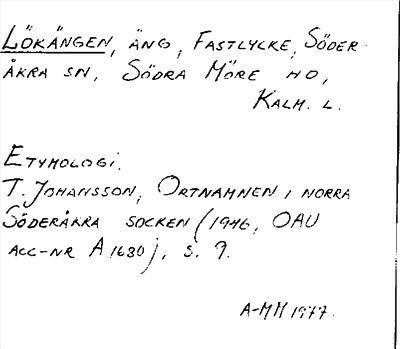 LÖKÄNGEN, ÄNG, FASTLYCKE, SÖDER-
ÅKRA SN, SÖDRA MÖRE HD,
KALM. L.
ETYMOLOGI.
T. JOHANSSON, ORTNAMNEN I NORRA
SÖDERÅKRA SOCKEN (1946, OAU
ACC-NR A 1630), S. 9.
A-MM 1977.